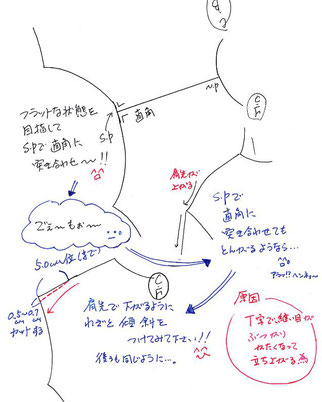 N.P
直角
S.P
フラットな状態を
目指して
S.Pで直角に
突き合わせ〜!!
肩先が
上がる
S.Pで
直角に
突き合わせても
とんがるようなら…
アラッ!?ヘンネェ〜
5.0cm位(まで)
0.5〜0.7
cm cm
カットする
肩先で下がるように
わざと傾斜を
つけてみて下さい!!
後ろも同じように…。
原因
丁字で、縫い目が
ぶつかり
かたくなって
立ち上がる為